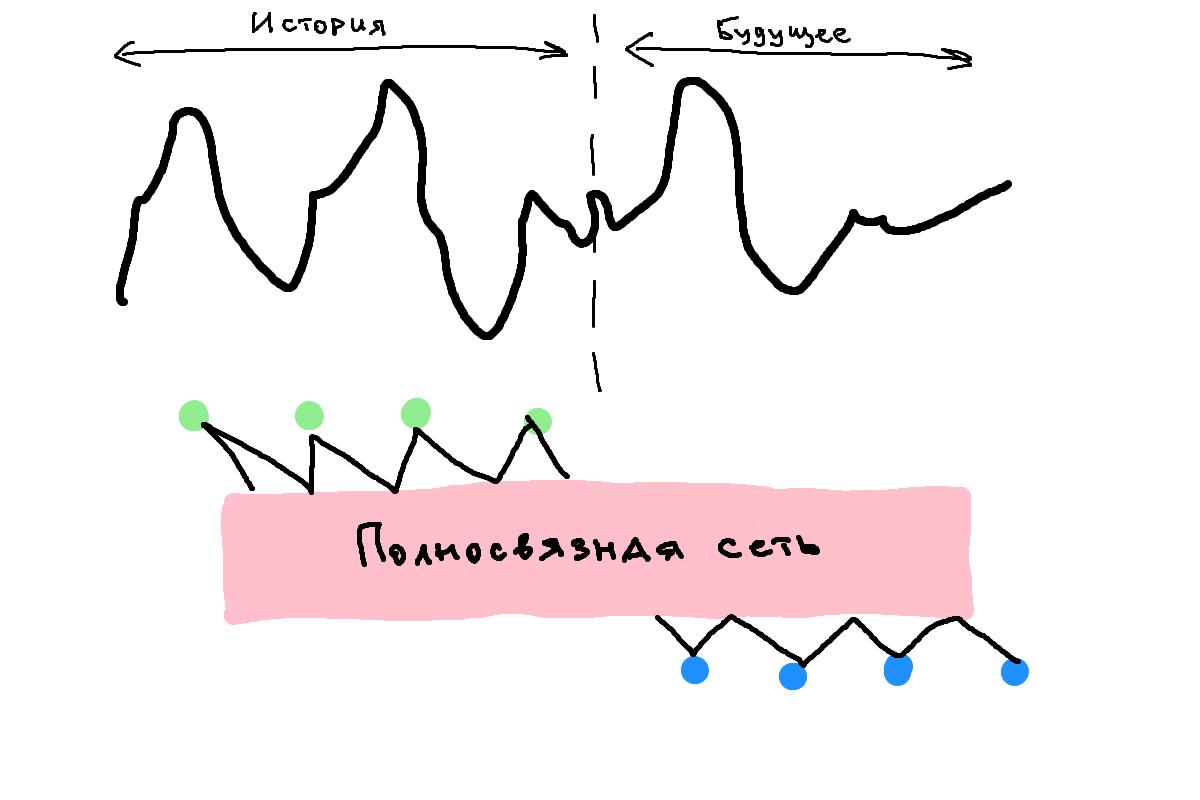 История
Будущее
Полносвязная сеть